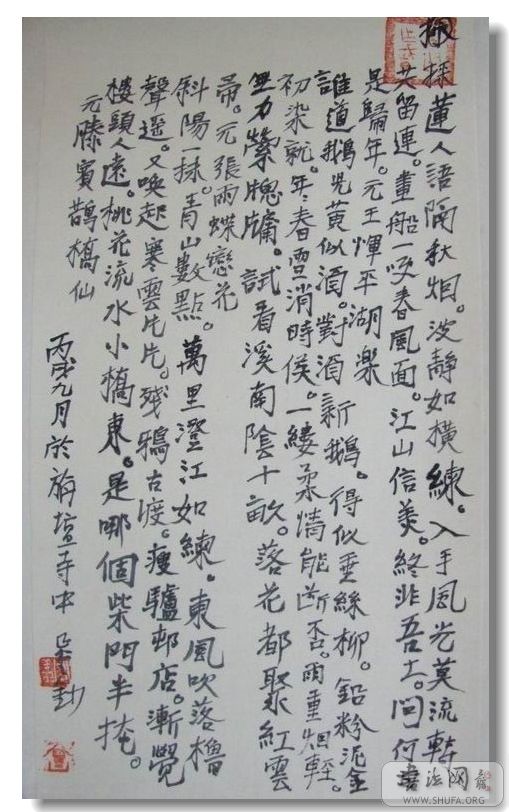 採蓮人語隔秋烟。波静如橫練。入手風光莫流轉
共留連。畫船一咲春風面。江山信美。終非吾土。問何
是歸年。元王惲平湖樂
誰道鵝兒黃似酒。對酒新鵝。得似垂絲柳。鉛粉泥金
初染就。年々春雪消時候。一縷柔情能斷否。雨重烟輕。
無力縈牕牖。試看溪南陰十畝。落花都聚紅雲
帚。元張雨蝶戀花
斜陽一抹。青山數點。萬里澄江如練。東風吹落櫓
聲遥。又喚起寒雲片片。殘鴉古渡。瘦驢邨店。漸覺
樓頭人遠。桃花流水小橋東。是哪個柴門半掩。
元滕賓鵲橋仙
丙戌九月於旃壇寺中
書法网
WWW.SHUFA.ORG